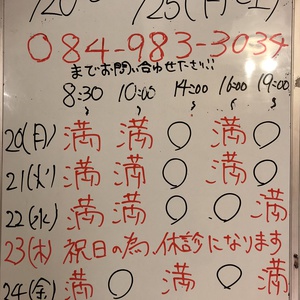 084-983-3034
までお問い合わせください!!
8:30 10:00 14:00 16:00 19:00
20(月) 満 満 ○ 満 ○
21(火) 満 満 ○ ○ ○
22(水) 満 満 ○ ○ 満
23(木) 祝日の為、休診になります
24(金) 満 ○ 満 ○ 満